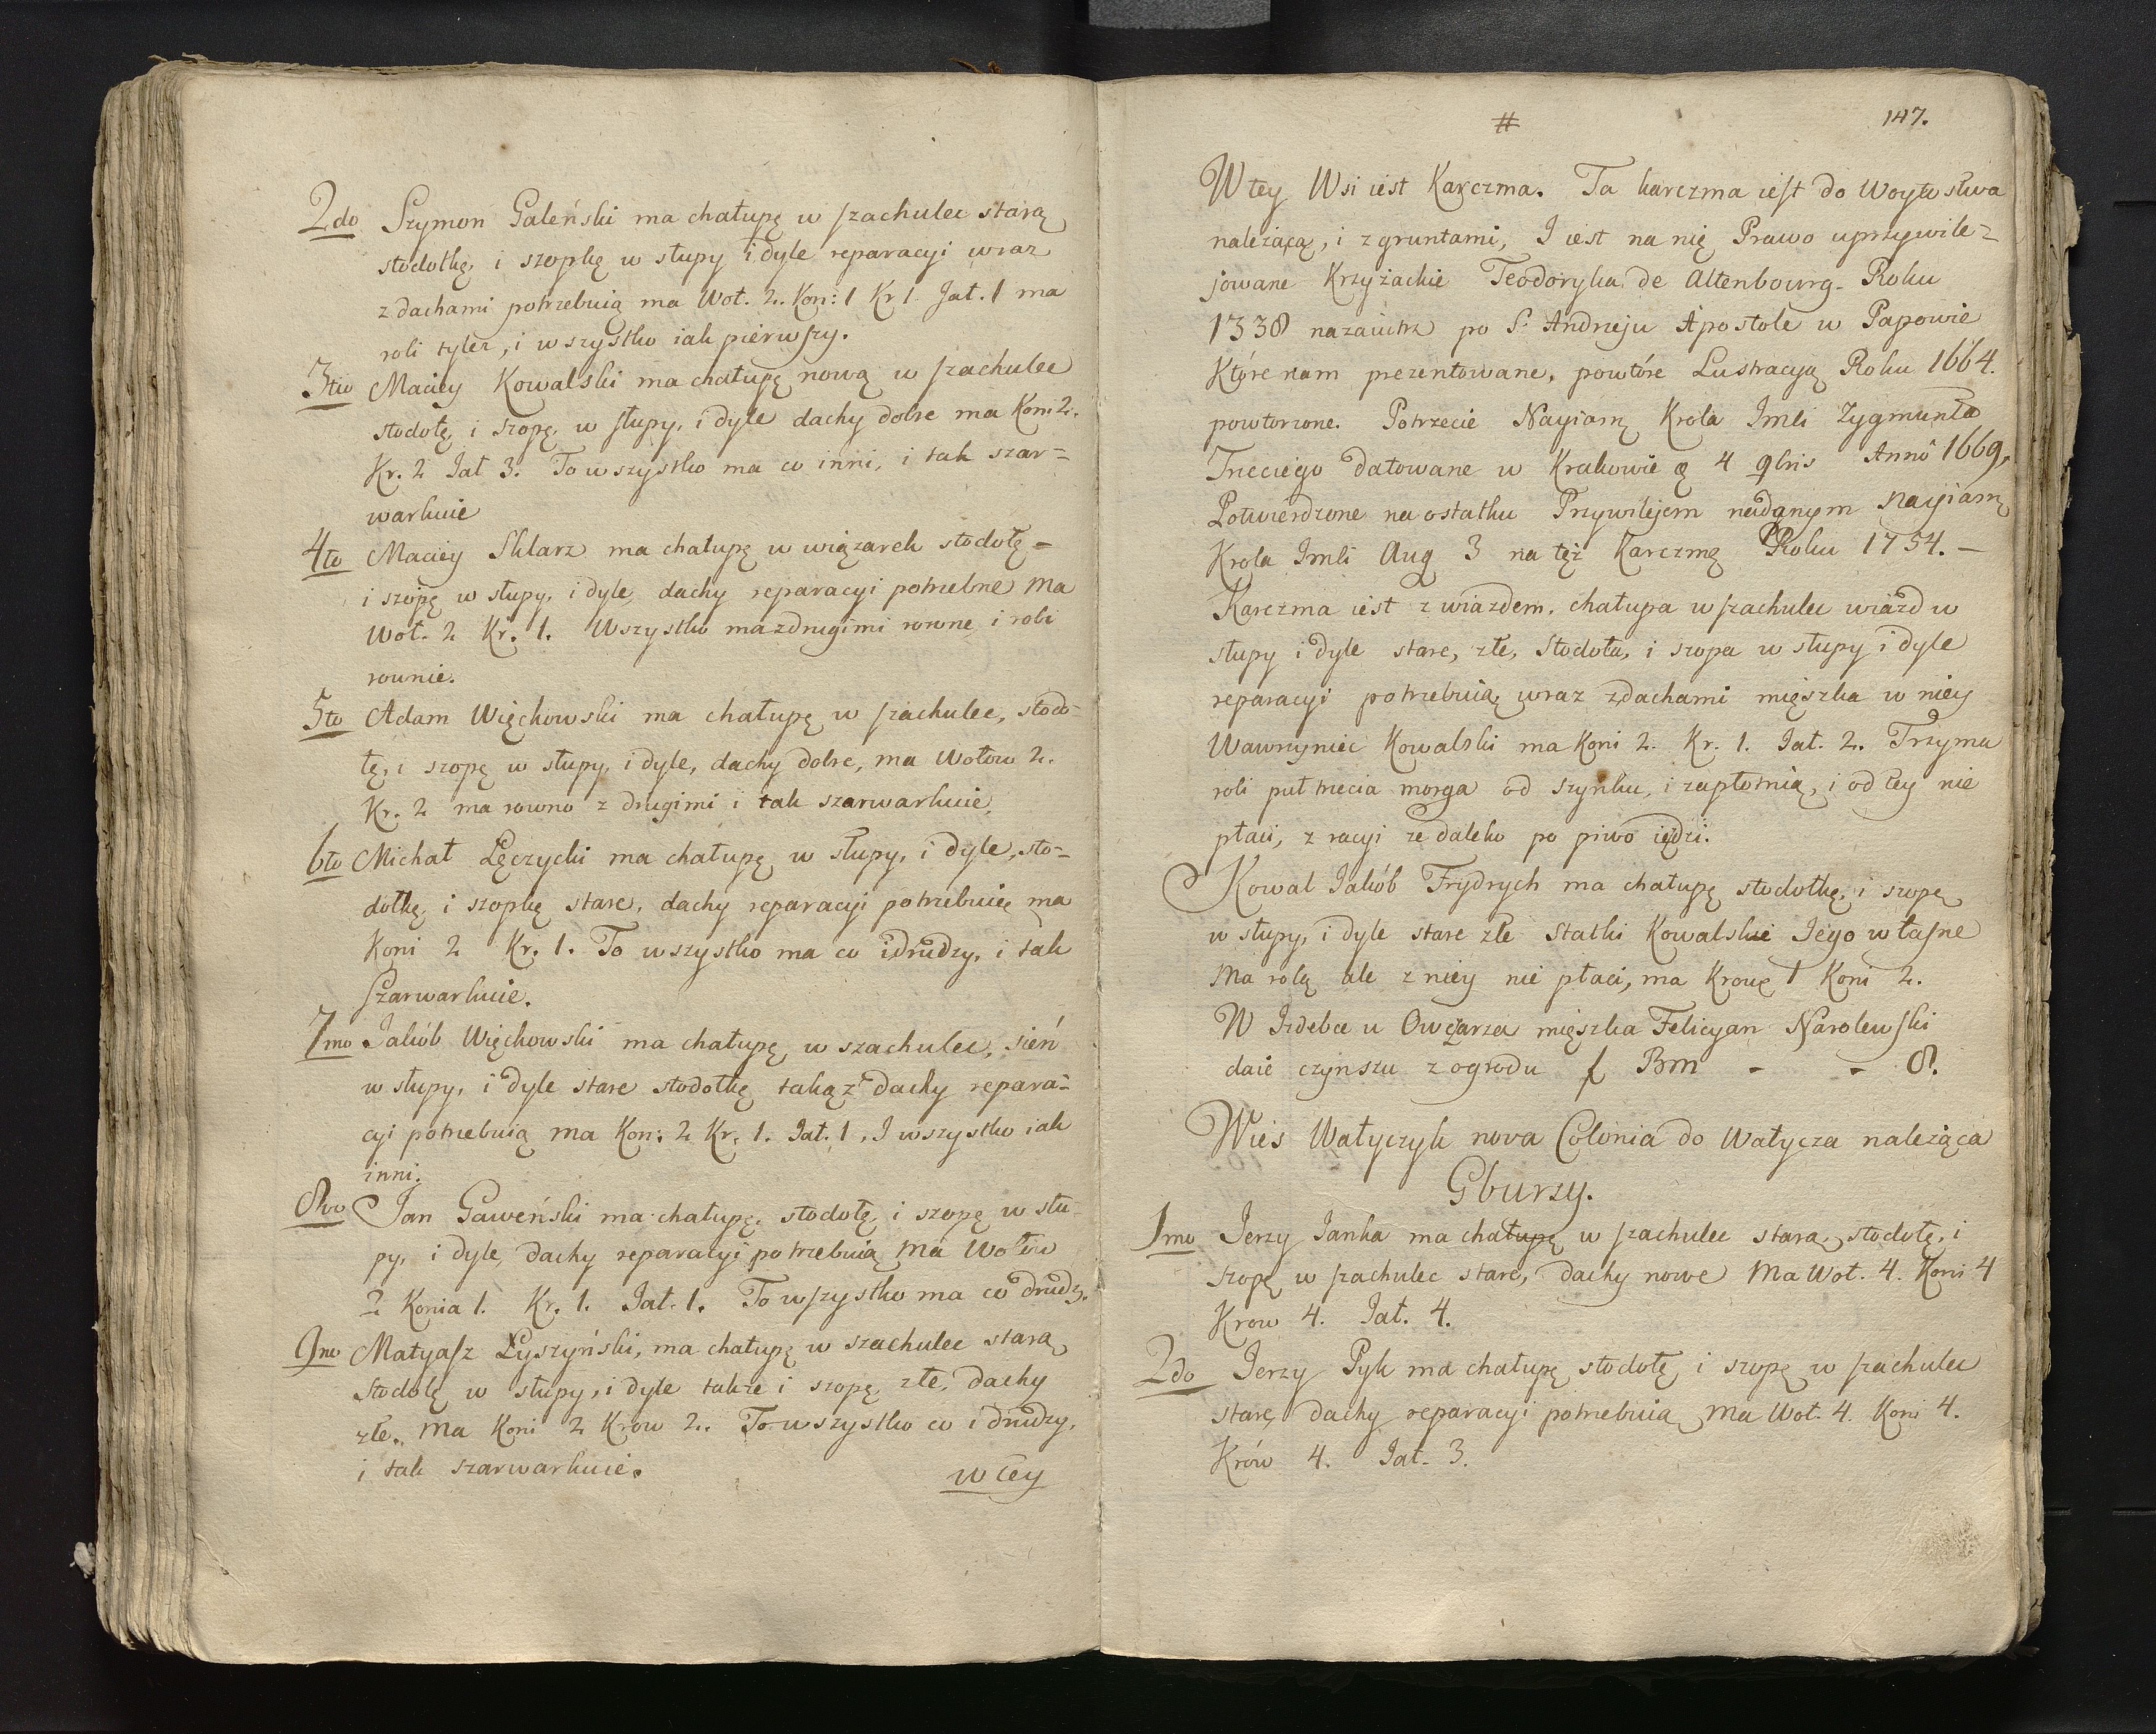 2do Szymon Galeński ma chałupę w szachulec starą
stodołkę, i szopkę w słupy i dyle reparacyi wraz
z dachami potrzebuią ma Woł. 2. Kon: 1 Kr 1. Jał. 1 ma
roli tylez, i wszystko iak pierwszy.
3tio Maciey Kowalski ma chałupę nową w szachulec
stodołę, i szopę, w słupy, i dyle dachy dobre ma Koni 2.
Kr. 2 Jał 3. To wszystko ma co inni, i tak szar=
warkuie
4to Maciey Sklarz ma chałupę w wiązarek stodołę=
i szopę w słupy, i dyle, dachy reparacyi potrzebne ma
Woł. 2 Kr. 1. Wszystko ma z drugimi rowne, i robi
rownie.
5to Adam Więckowski ma chałupę w szachulec, stodo=
łę, i szopę w słupy, i dyle, dachy dobre, ma Wołow 2.
Kr. 2 ma rowno z drugimi i tak szarwarkuie,
6to Michał Łęczycki ma chałupę w słupy, i dyle, sto=
dołkę, i szopkę stare, dachy reparacyi potrzebuię ma
Koni 2 Kr. 1. To wszystko ma co i drudzy, i tak
szarwarkuie.
7mo Jakób Więckowski ma chałupę, w szachulec, sień
w słupy, i dyle stare stodołkę takąz dachy repara=
cyi potrzebuią ma Kon: 2 Kr. 1. Jał. 1, I wszystko iak
inni.
8vo Jan Gaweński ma chałupę, stodołę, i szopę w słu=
py, i dyle, dachy reparacyi potrzebuią ma Wołow
2 Konia 1. Kr. 1. Jał. 1. To wszystko ma co drudz.
9no Matyasz Łyszyński, ma chałupę w szachulec starą,
stodołę w słupy, i dyle także i szopę złe, dachy
złe. Ma Koni 2 Krow 2. To wszystko co i drudzy,
i tak szarwarkuie.
w tey
# 147.
W tey Wsi iest Karczma. Ta karczma iest do Woytostwa
należącą, i z gruntami, I iest na nię Prawo uprzywile=
jowane Krzyżackie Teodoryka de Altenbourg. Roku
1338 nazaiutrz po S. Andrzeju Apostole w Papowie
Które nam prezentowane, powtóre Lustracyą Roku 1664.
powtorzone. Potrzecie Nayiaśn Krola Jmci Zygmunta
Trzeciego datowane w Krakowie 4 9bris Anno 1669,
Potwierdzone na ostatku Przywilejem nadanym Nayiaśn
Krola Jmci Aug 3 na tęż Karczmę Roku 1754. —
Karczma iest z wiazdem, chałupa w szachulec wiazd w
słupy i dyle stare, złe, Stodoła, i szopa w słupy i dyle
reparacyi potrzebuią, wraz z dachami mięszka w niey
Wawrzyniec Kowalski ma Koni 2. Kr. 1. Jał. 2. Trzyma
roli puł trzecia morga od szynku, i zapłotnią, i od tey nie
płaci, z racyi ze daleko po piwo ieździ.
Kowal Jakób Frydrych ma chałupę stodołkę, i szopę
w słupy, i dyle stare złe Statki Kowalskie Jego własne
Ma rolą ale z niey nie płaci, ma Krowę 1 Koni 2.
W Izdebce u Owczarza mięszka Felicyan Narolewski
daie czynszu z ogrodu f Bm - - 8.
Wieś Wałyczyk nova Colonia do Wałycza należąca
Gburzy.
1mo Jerzy Janka ma chałupę w szachulec starą, stodołę, i
szopę w szachulec stare, dachy nowe Ma Woł. 4. Koni 4
Krow 4. Jał. 4.
2do Jerzy Pyk ma chałupę stodołę i szopę w szachulec
stare, dachy reparacyi potrzebuią Ma Woł. 4. Koni 4.
Krów 4. Jał. 3.